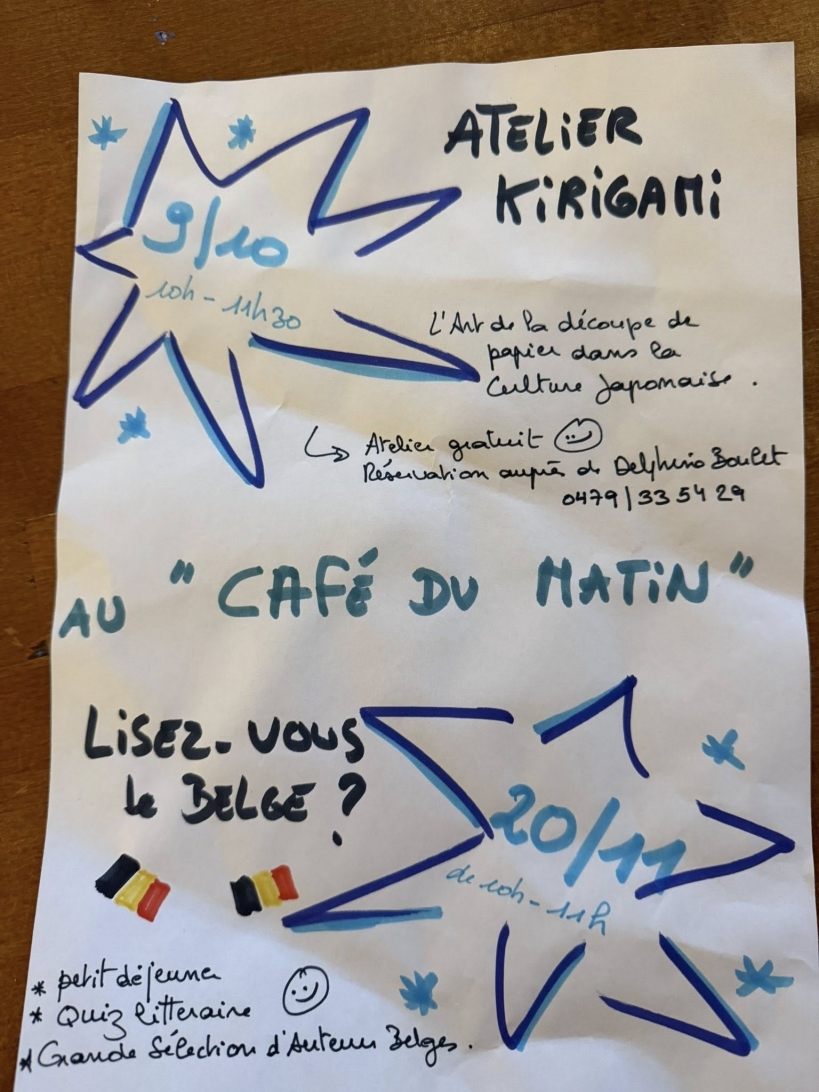 ATELIER
KIRIGAMI
9/10
10h - 11h30
L'Art de la découpe de
papier dans la
Culture Japonaise.
Atelier gratuit
Réservation auprès de Delphine Boulet
0479/33 54 29
AU "CAFÉ DU MATIN"
LISEZ-VOUS
le BELGE ?
20/11
de 10h - 11h
* petit déjeuner
* Quiz litteraire
* Grande Sélection d'Auteurs Belges.